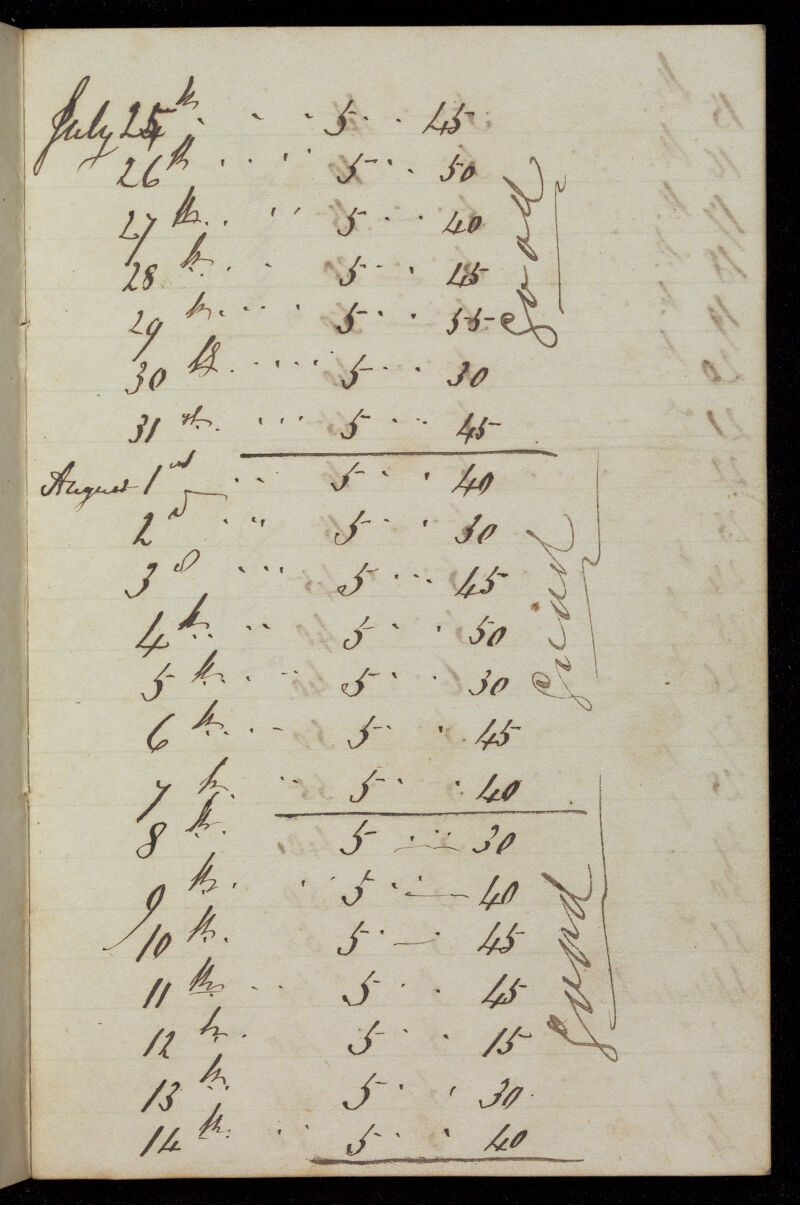 July 25th . . . 5 . . 45
26th . . . . 5 . . . 50
27th . . . . 5 . . . 40
28th . . . 5 . . . 45
29th . . . . 5 . . . 55
30th . . . . . 5 . . . 30
31st . . . . 5 . . . 45
good
August 1st . . 5 . . 40
2d . . . 5 . . 30
3d . . . 5 . . . 45
4th . . . 5 . . 50
5th . . . 5 . . 30
6th . . - 5 . . 45
7th . . 5 . . 40
Good
8th 5 . . . 30
9th . . . 5 . . 40
10th 5 . . 45
11th . . 5 . . 45
12th . 5 . . 15
13th 5 . . 30
14th . . 5 . . 40
Good